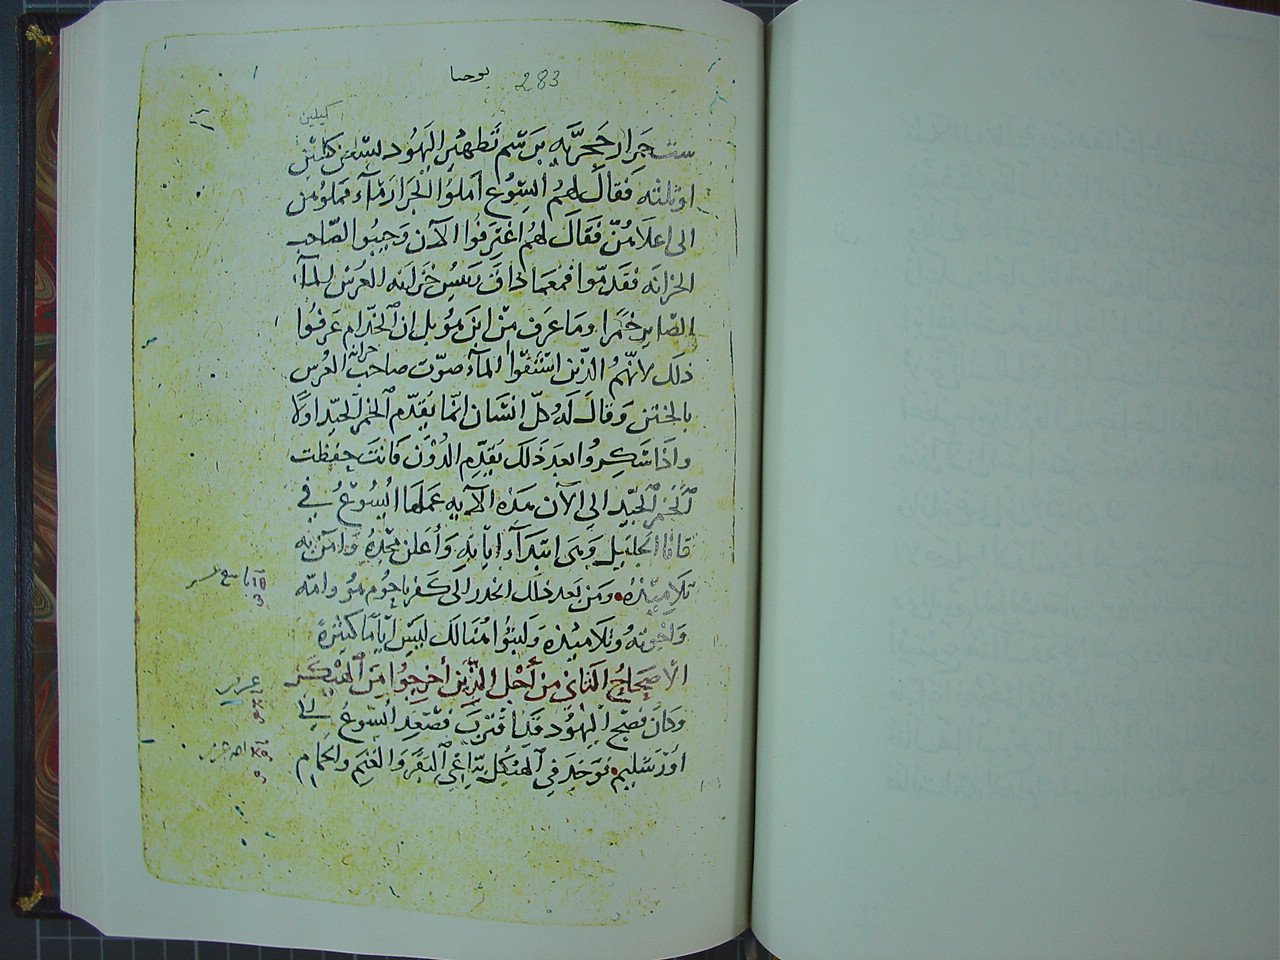 يوحنا 283
كيلين
ست جرار حجريه برسم تطهير اليهود لتسعن كيلين
او ثلثه فقال لهم اليسوع املوا الجرار مآء فملوهن
الى اعلاهن فقال لهم اغترفوا الآن وجيبوا الصاحب
الخزانه فقدموا فمعما ذاق ريس خزانه العرس المآ
الصاير خمرا وما عرف من اين هو بل ان الخدام عرفوا
ذلك لانهم الذين استقوا المآء صوت صاحب خزانه العرس
بالختن وقال له كل انسان انما يقدم الخمر الجيد اولا
واذا سكروا بعد ذلك يقدم الدون فانت حفظت
الخمر الجيد الى الآن هذه الآيه عملها اليسوع في
قانا الجليل وهى ابتدآء اياته وأعلن مجده وامن به
تلاميذه ومن بعد ذلك انحدر الى كفرناحوم هو وامه
واخوته وتلاميذه ولبثوا هنالك ليس اياما كثيرة
الأصحاح الثاني من أجل الذين أخرجوا من الهيكل
وكان فصح اليهود قد اقترب فصعد اليسوع الى
اورشليم فوجد في الهيكل بياعي البقر والغنم والحمام